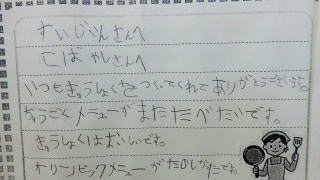 すいじいんさんへ
こばやしさんへ
いつもきゅうしょくをつくってくれてありがとうございます。
ちゅうごくメニューがまたたべたいです。
きゅうしょくはおいしいです。
オリンピックメニューがたのしかたです。